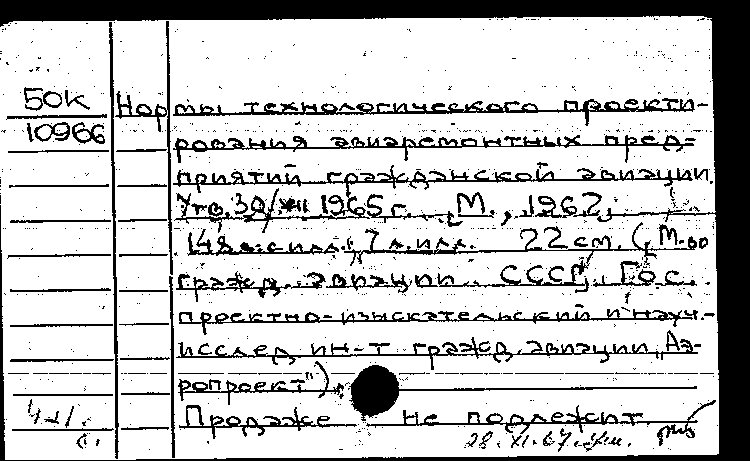 50К
10966
Нормы технологического проекти-
рования авиаремонтных пред-
приятий гражданской авиации.
Утв. 30/XII 1965 г. [М., 1967]
22 см. (М-во
гражд. авиации СССР. Гос.
проектно-изыскательский и науч.-
исслед. ин-т гражд. авиации „Аэ-
ропроект").
Продаже не подлежит